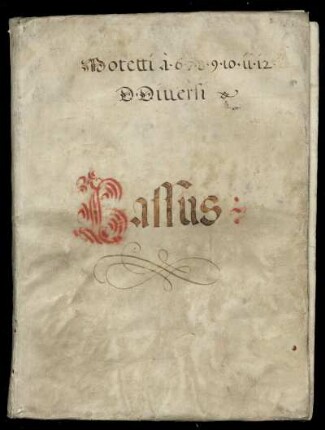 Motetti à·6·7·8·9·10·11·12
D·Diuersi
Bassus: